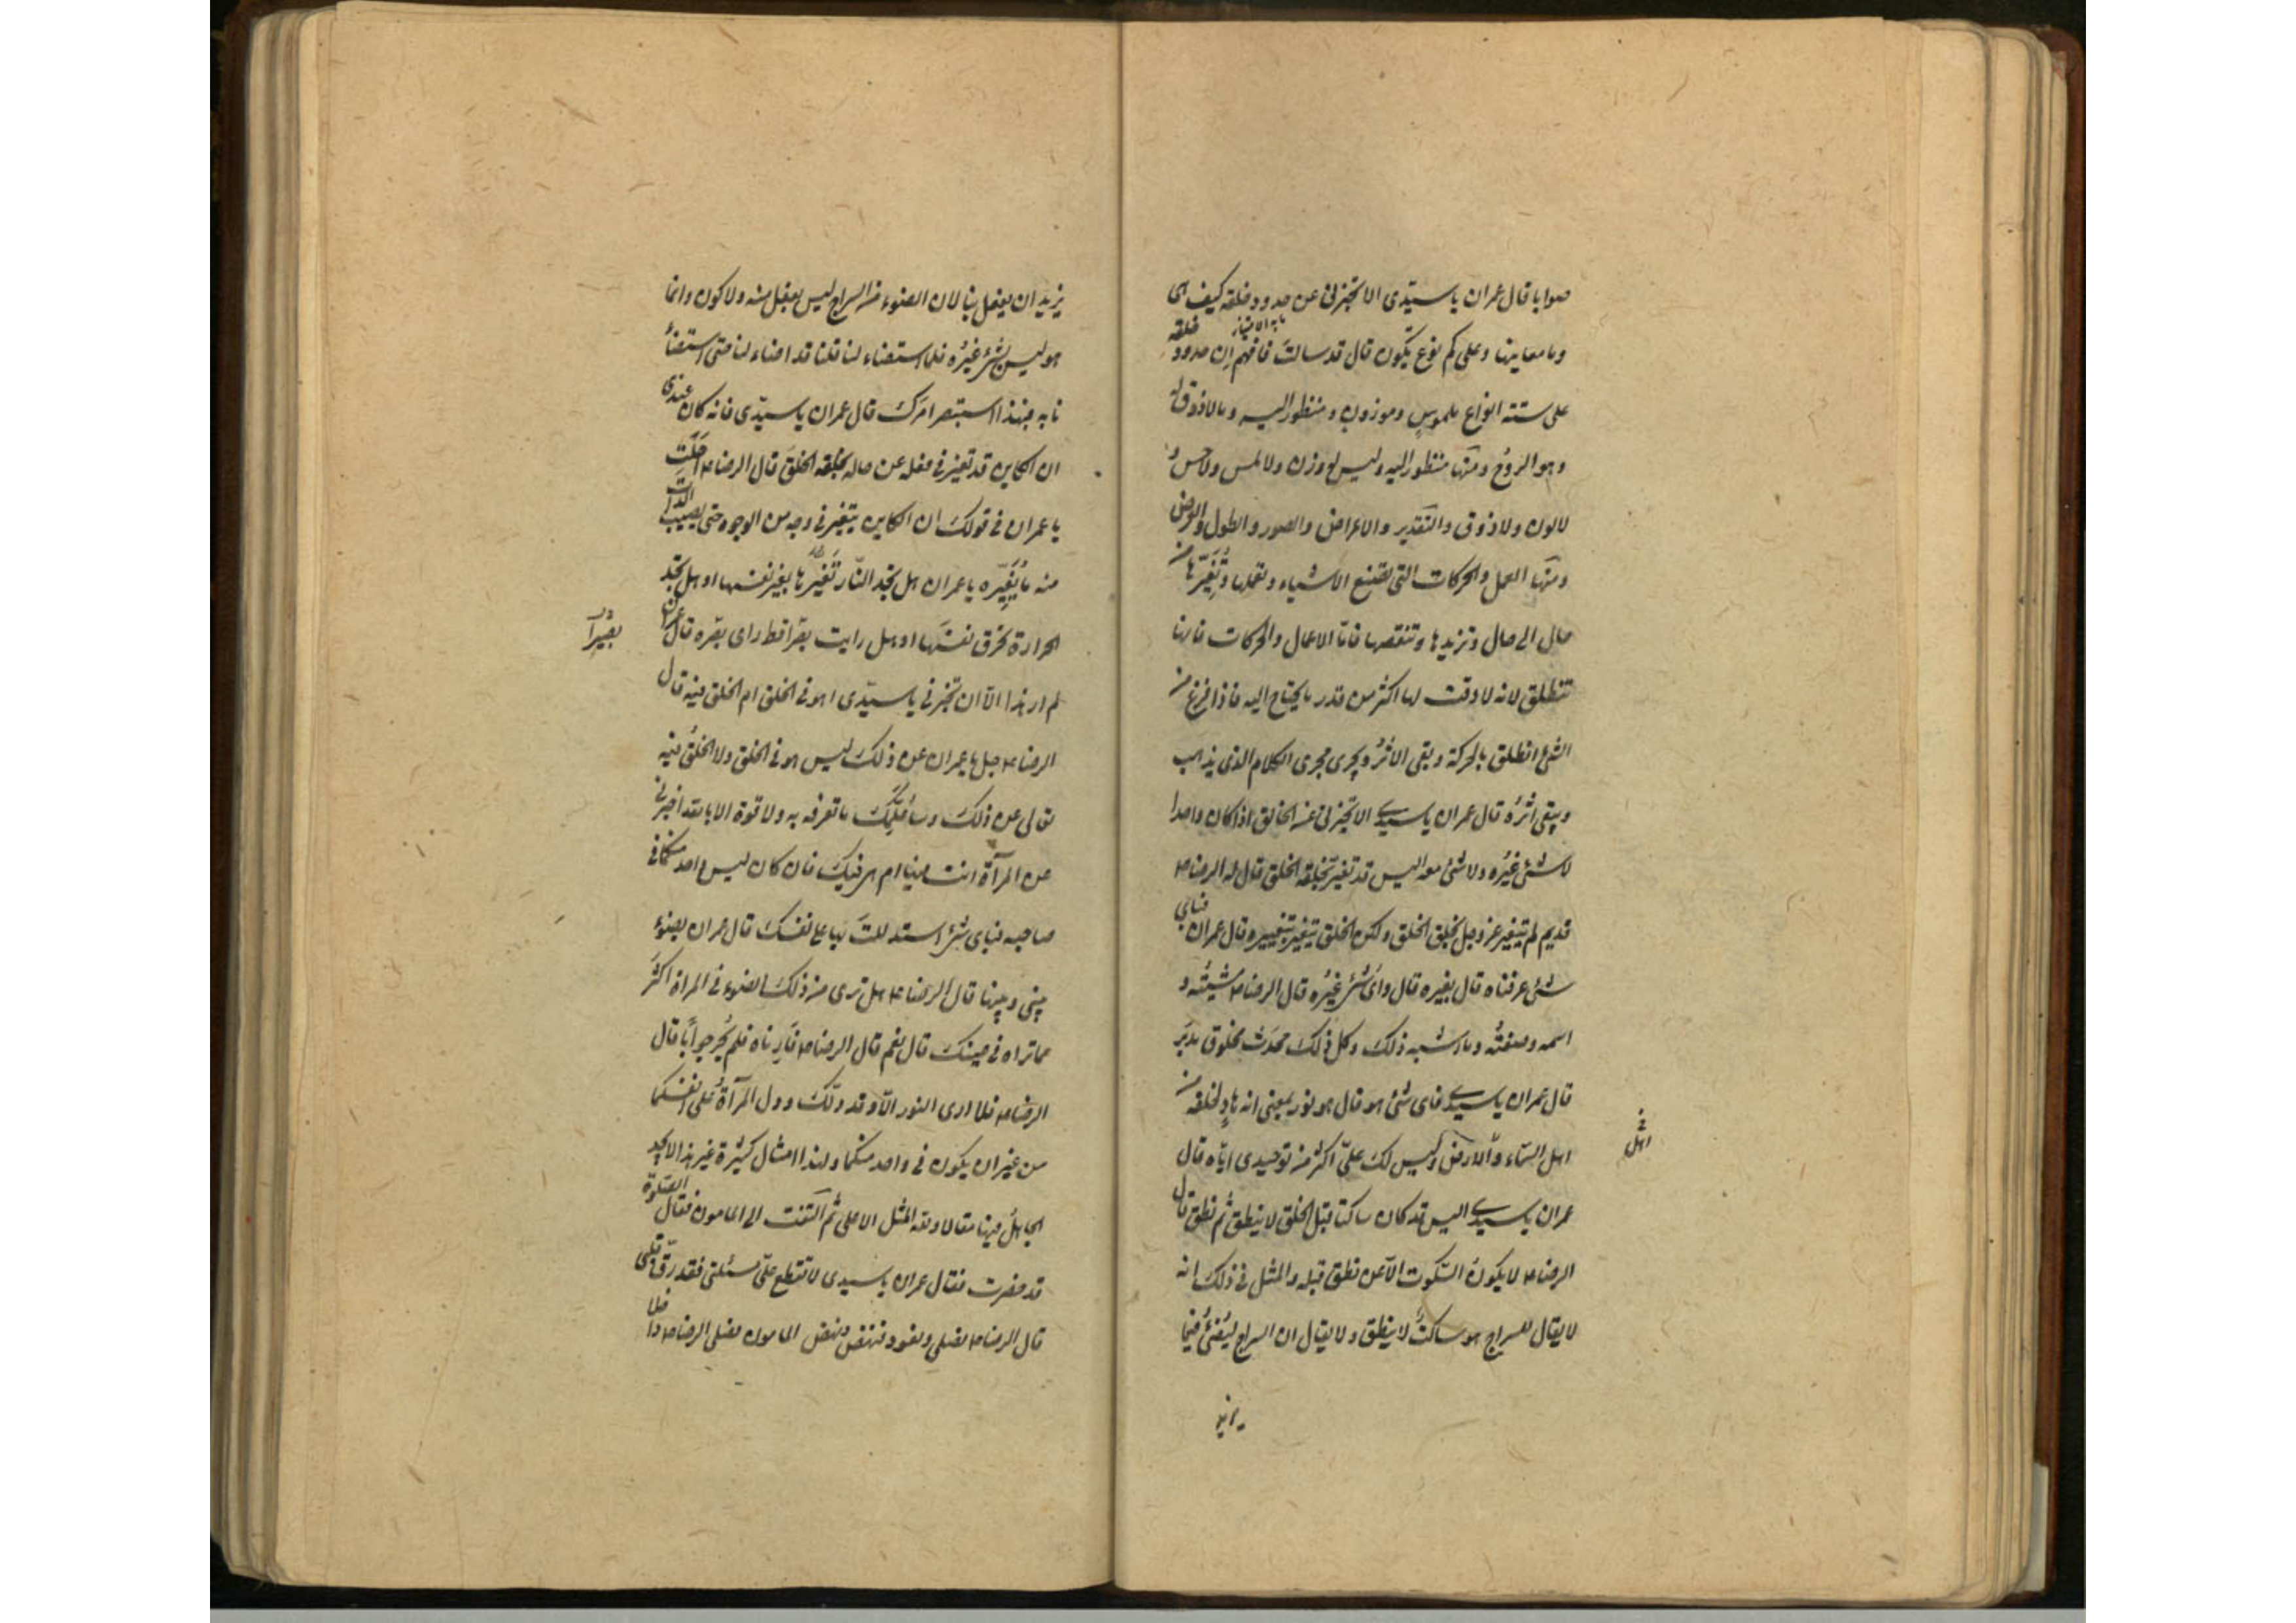 صوابا قال عمران يا سيّدى الا تخبرنى عن حدود خلقه كيف هى
وما معانيها وعلى كم نوع يتكون قال قد سالت فافهم ان حدود خلقه
على ستة انواع ملموس وموزون ومنظور اليه وما لا ذوق له
وهو الروح ومنها منظور اليه وليس له وزن ولا لمس ولا حس و
لا لون ولا ذوق والتقدير والاعراض والصور والطول والعرض
ومنها العمل والحركات التى تصنع الاشياء وتعملها وتغيّرها من
حال الى حال وتزيدها وتنقصها فامّا الاعمال والحركات فانها
تنطلق لانه لا وقت لها اكثر من قدر ما يحتاج اليه فاذا فرغ من
الشئ انطلق بالحركة وبقى الاثر ويجرى مجرى الكلام الذى يذهب
ويبقى اثره قال عمران يا سيدى الا تخبرنى عن الخالق اذا كان واحدا
لا شئ غيره ولا شئ معه اليس قد تغير بخلقه الخلق قال له الرضا ع
قديم لم يتغير عز وجل بخلق الخلق ولكن الخلق يتغير بتغييره قال عمران فباى
شئ عرفناه قال بغيره قال واى شئ غيره قال الرضا ع مشيته و
اسمه وصفته وما اشبه ذلك وكل ذلك محدث مخلوق مدبر
قال عمران يا سيدى فاى شئ هو قال هو نور بمعنى انه هاد لخلقه من
اهل السّماء والارض وليس لك علىّ اكثر من توحيدى ايّاه قال
اهل
عمران يا سيدى اليس قد كان ساكتا قبل الخلق لا ينطق ثم نطق قال
الرضا ع لا يكون السّكوت الّا عن نطق قبله والمثل فى ذلك انه
لا يقال للسراج هو ساكت لا ينطق ولا يقال ان السراج ليضئ فيما
يريد
يريد ان يفعل بنا لان الضوء من السراج ليس بفعل منه ولا كون وانما
هو ليس شئ غيره فلما استضاء لنا قلنا قد اضاء لنا حتى استضأ
نا به فبهذا استبصر امرك قال عمران يا سيّدى فانه كان عندى
ان الكاين قد تغير فى فعله عن حاله بخلقه الخلق قال الرضا ع احلت
يا عمران فى قولك ان الكاين يتغير فى وجه من الوجوه حتى يصيب الذات
منه ما يُغيّره يا عمران هل تجد النّار تغيّرها بغير نفسها او هل تجد
الحرارة تحرق نفسها او هل رايت بصرا قط راى بصره قال عمران
بصيراً
لم ار هذا الّا ان تخبرنى يا سيّدى اهو فى الخلق ام الخلق فيه قال
الرضا ع جل يا عمران عن ذلك ليس هو فى الخلق ولا الخلق فيه
تعالى عن ذلك وسأعلمك ما تعرفه به ولا قوة الا بالله اخبرنى
عن المرآة انت فيها ام هى فيك فان كان ليس واحد منكما فى
صاحبه فباى شئ استدللت بها على نفسك قال عمران بضوء
بينى وبينها قال الرضا ع هل ترى من ذلك الضوء فى المراة اكثر
مما تراه فى عينك قال نعم قال الرضا ع فارناه فلم يحر جوابا قال
الرضا ع فلا ارى النور الّا وقد دلّك ودل المرآة على انفسكما
من غير ان يكون فى واحد منكما ولهذا امثال كثيرة غير هذا لا يجد
الجاهل فيها مقالا ولله المثل الاعلى ثم التفت الى المامون فقال الصّلوة
قد حضرت فقال عمران يا سيدى لا تقطع علىّ مسئلتى فقد رقّ قلبى
قال الرضا ع نصلى ونعود فنهض ونهض المامون فصلى الرضا ع داخلا